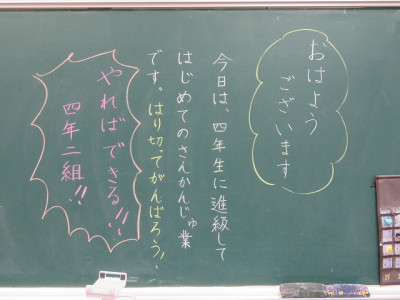 おはよう
ございます
今日は、四年生に進級して
はじめてのさんかんじゅ業
です。はり切ってがんばろう！
やればできる！！
四年二組！！